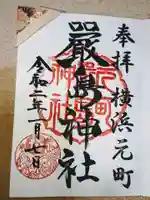 奉拝 横浜元町
嚴島神社
令和二年一月七日